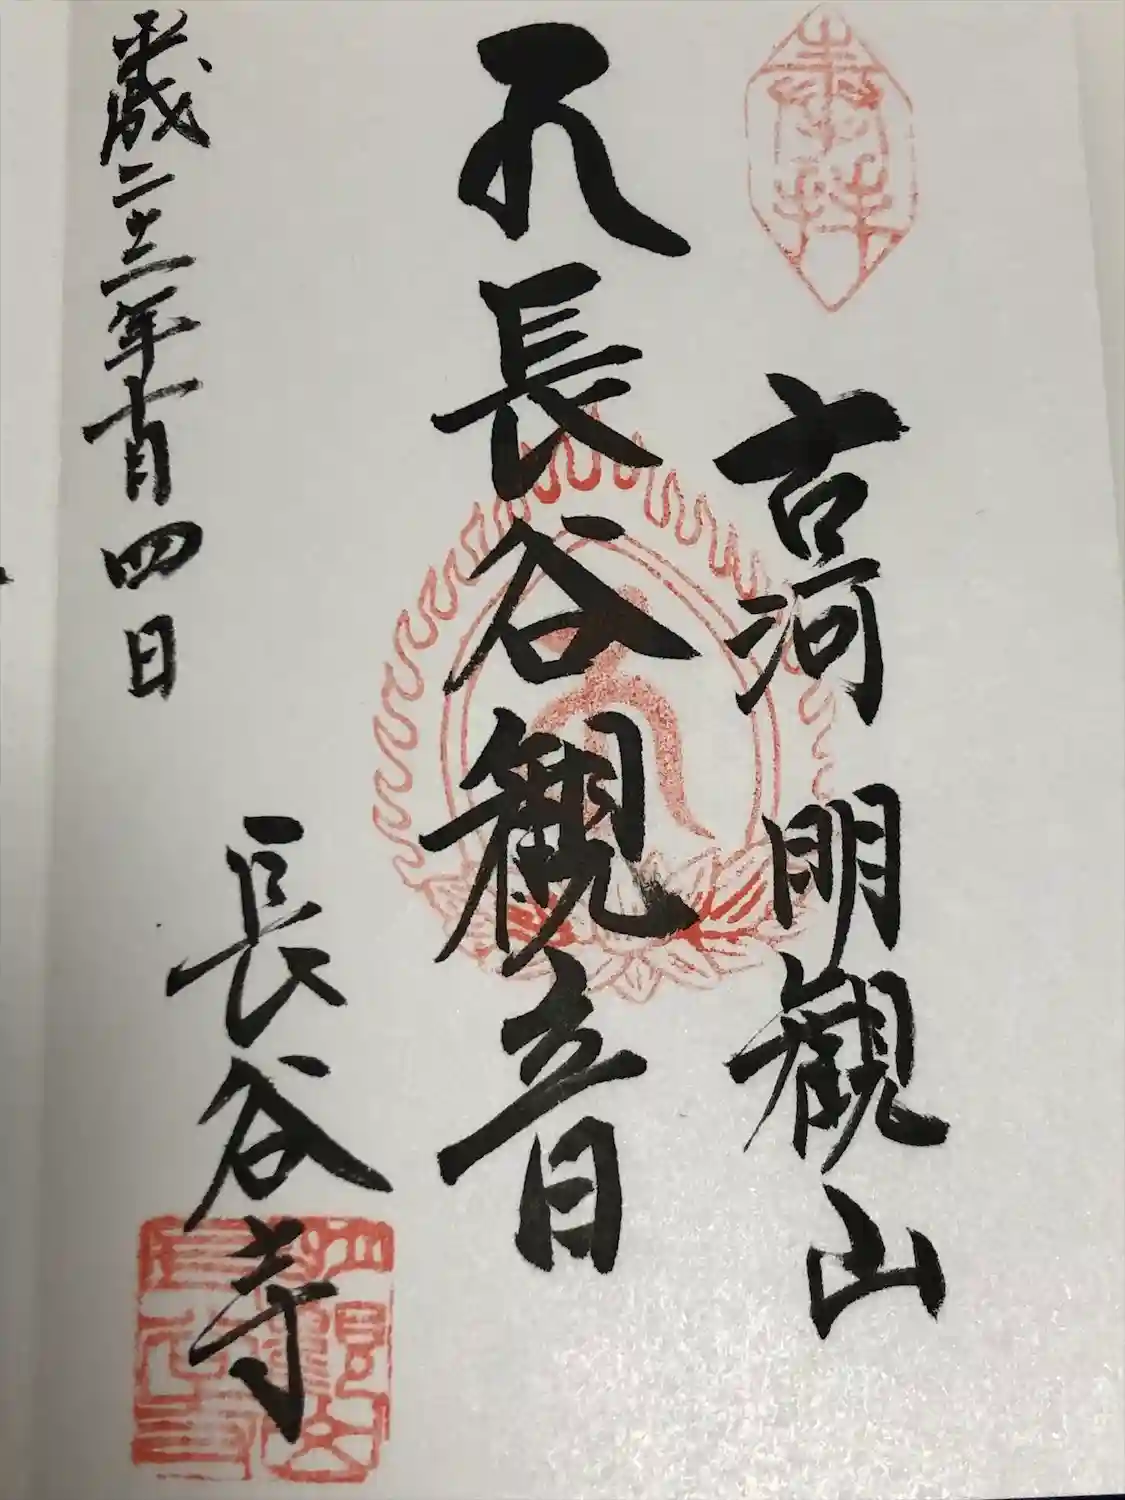 奉拝
古河 明観山
長谷観音
長谷寺
平成二十三年十一月四日